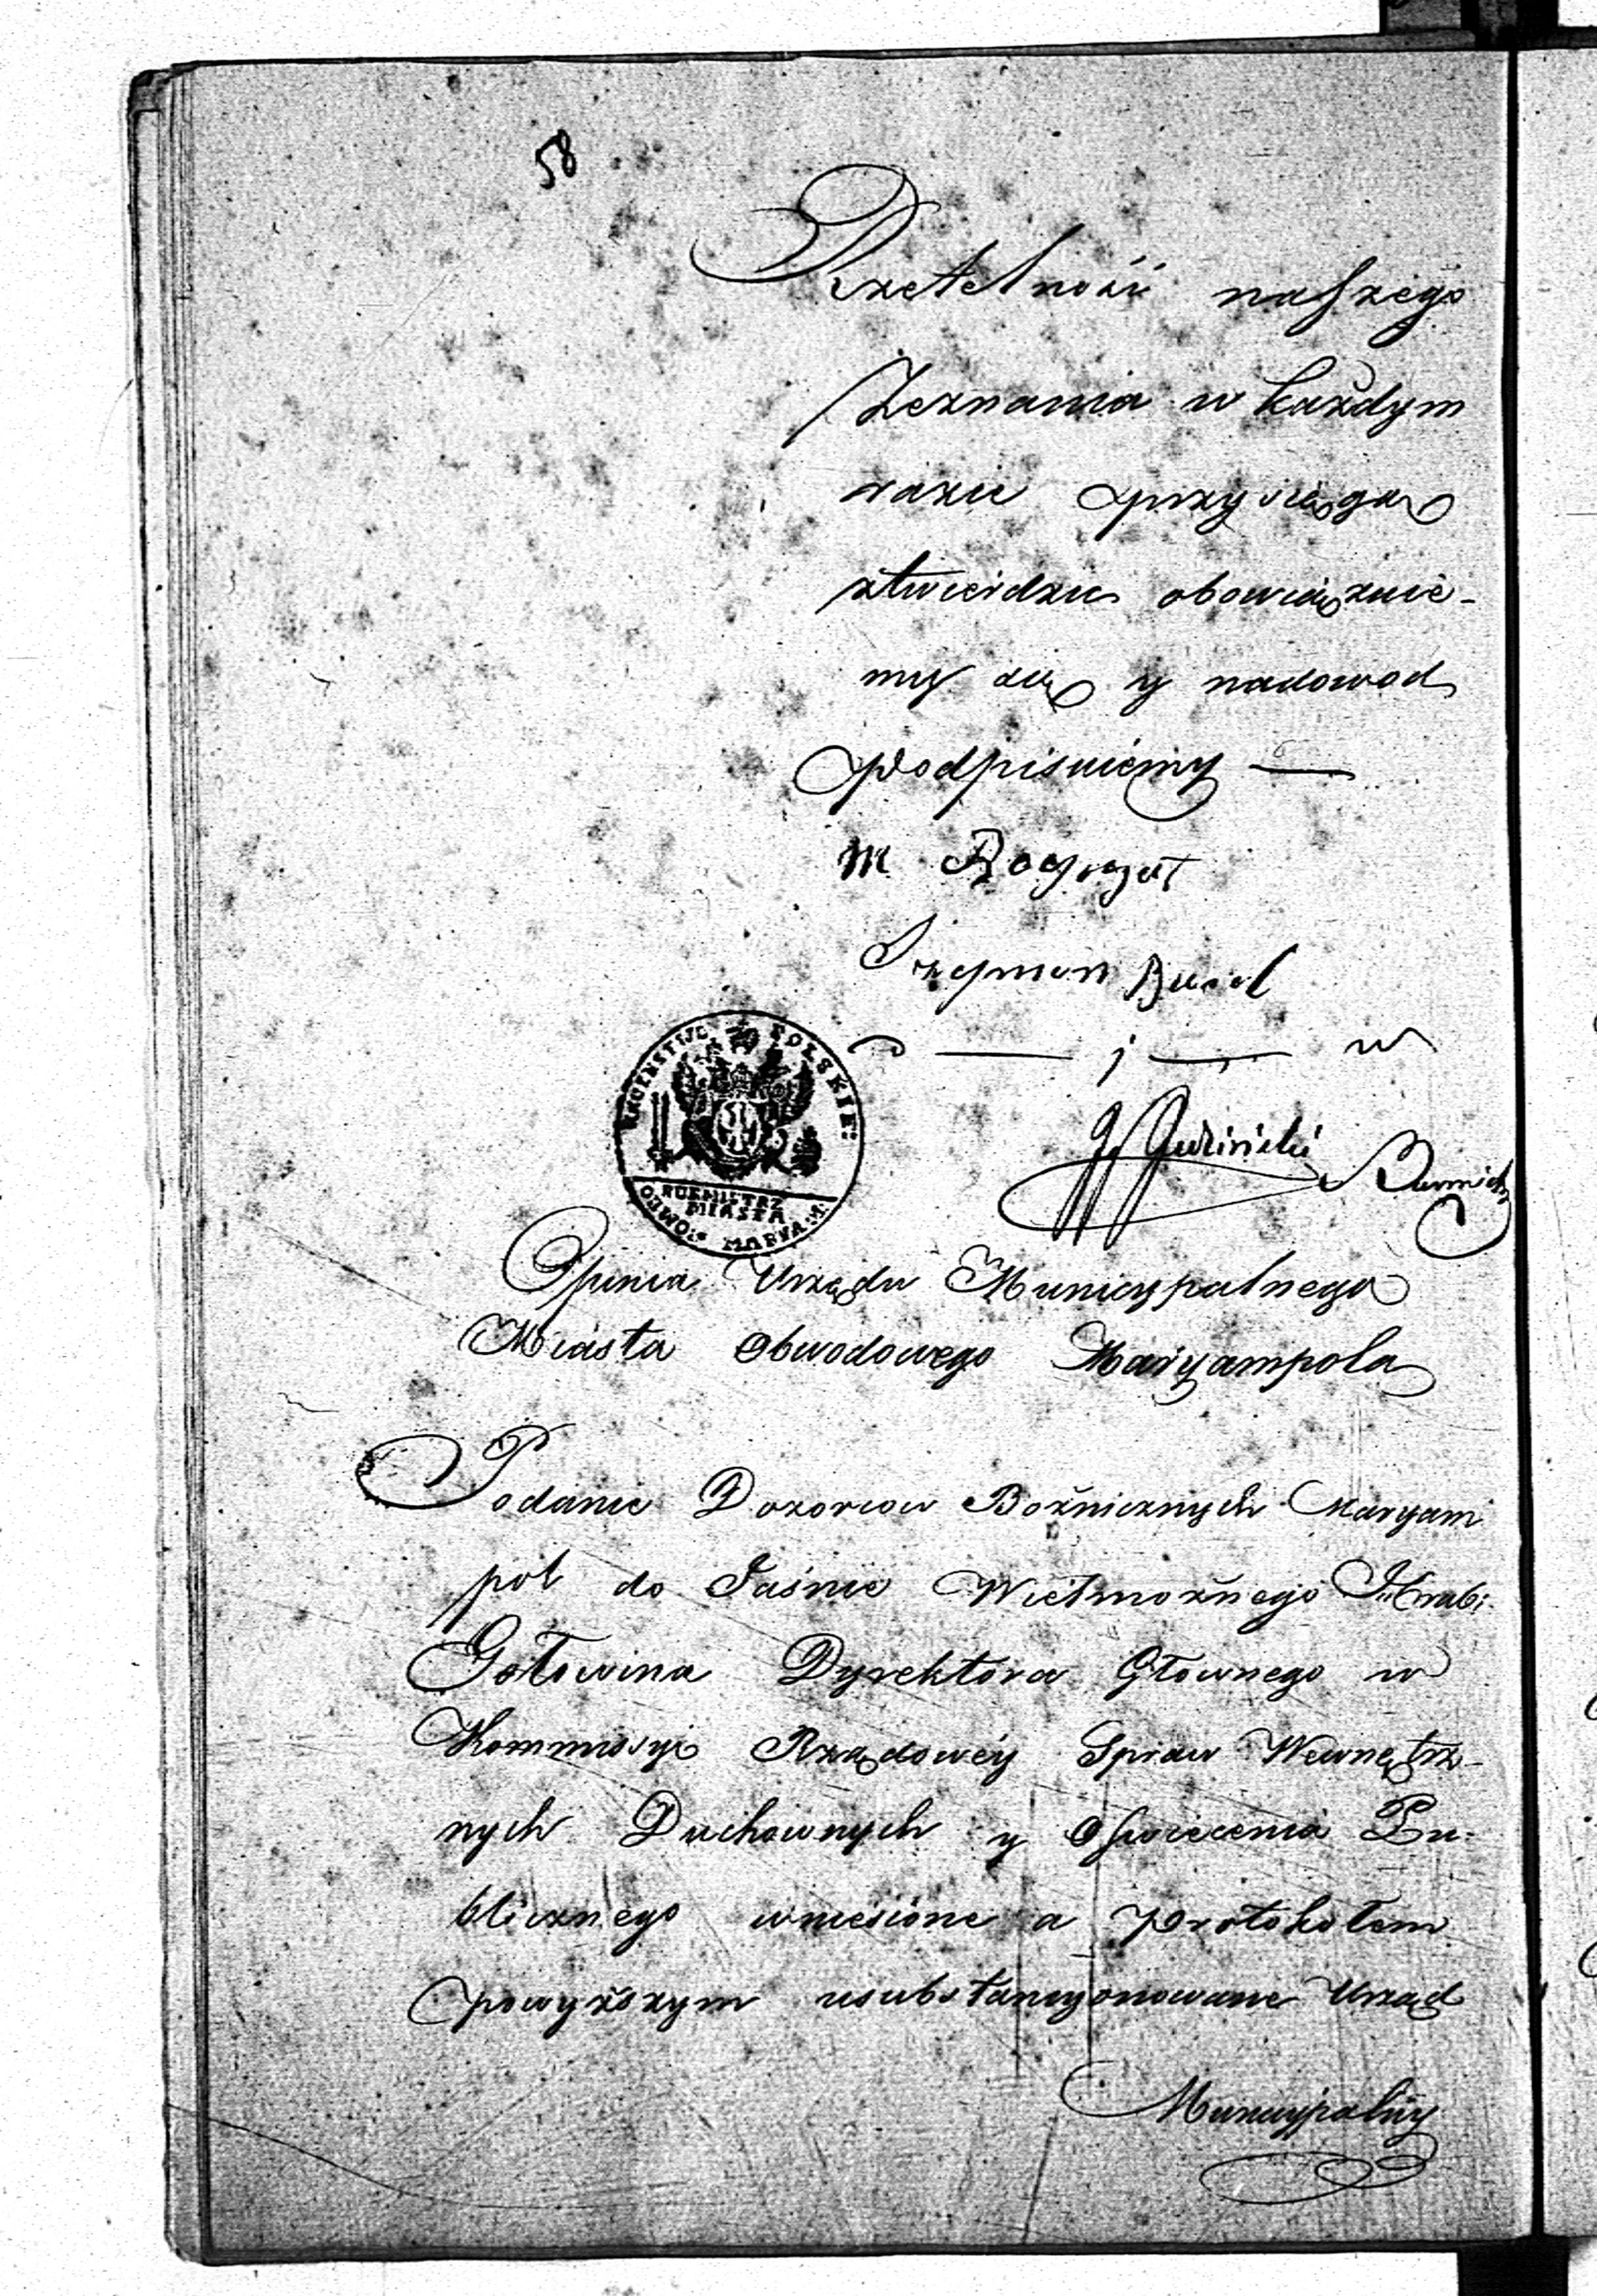 58
Rzetelność naszego
Zeznania w każdym
razie przysięgą
ztwierdzic obowiązuie-
my się y nadowod
podpisuiemy —
M
Szymon
w
J
Burmistrz
KRÓLESTWO POLSKIE
BURMISTRZ
MIASTA
OBWO: MARYA:M:
Opinia Urzędu Municypalnego
Miasta Obwodowego Maryampola
Podanie Dozorcow Bożnicznych Maryam
pol do Jaśnie Wielmożnego Hrabi
Gołowina Dyrektora Głownego w
Kommissyi Rządowéy Spraw Wewnętrz-
nych Duchownych y Oświecenia Pu-
blicznego wniesione a Protokołem
powyższym usubstancyonowane Urząd
Municypalny